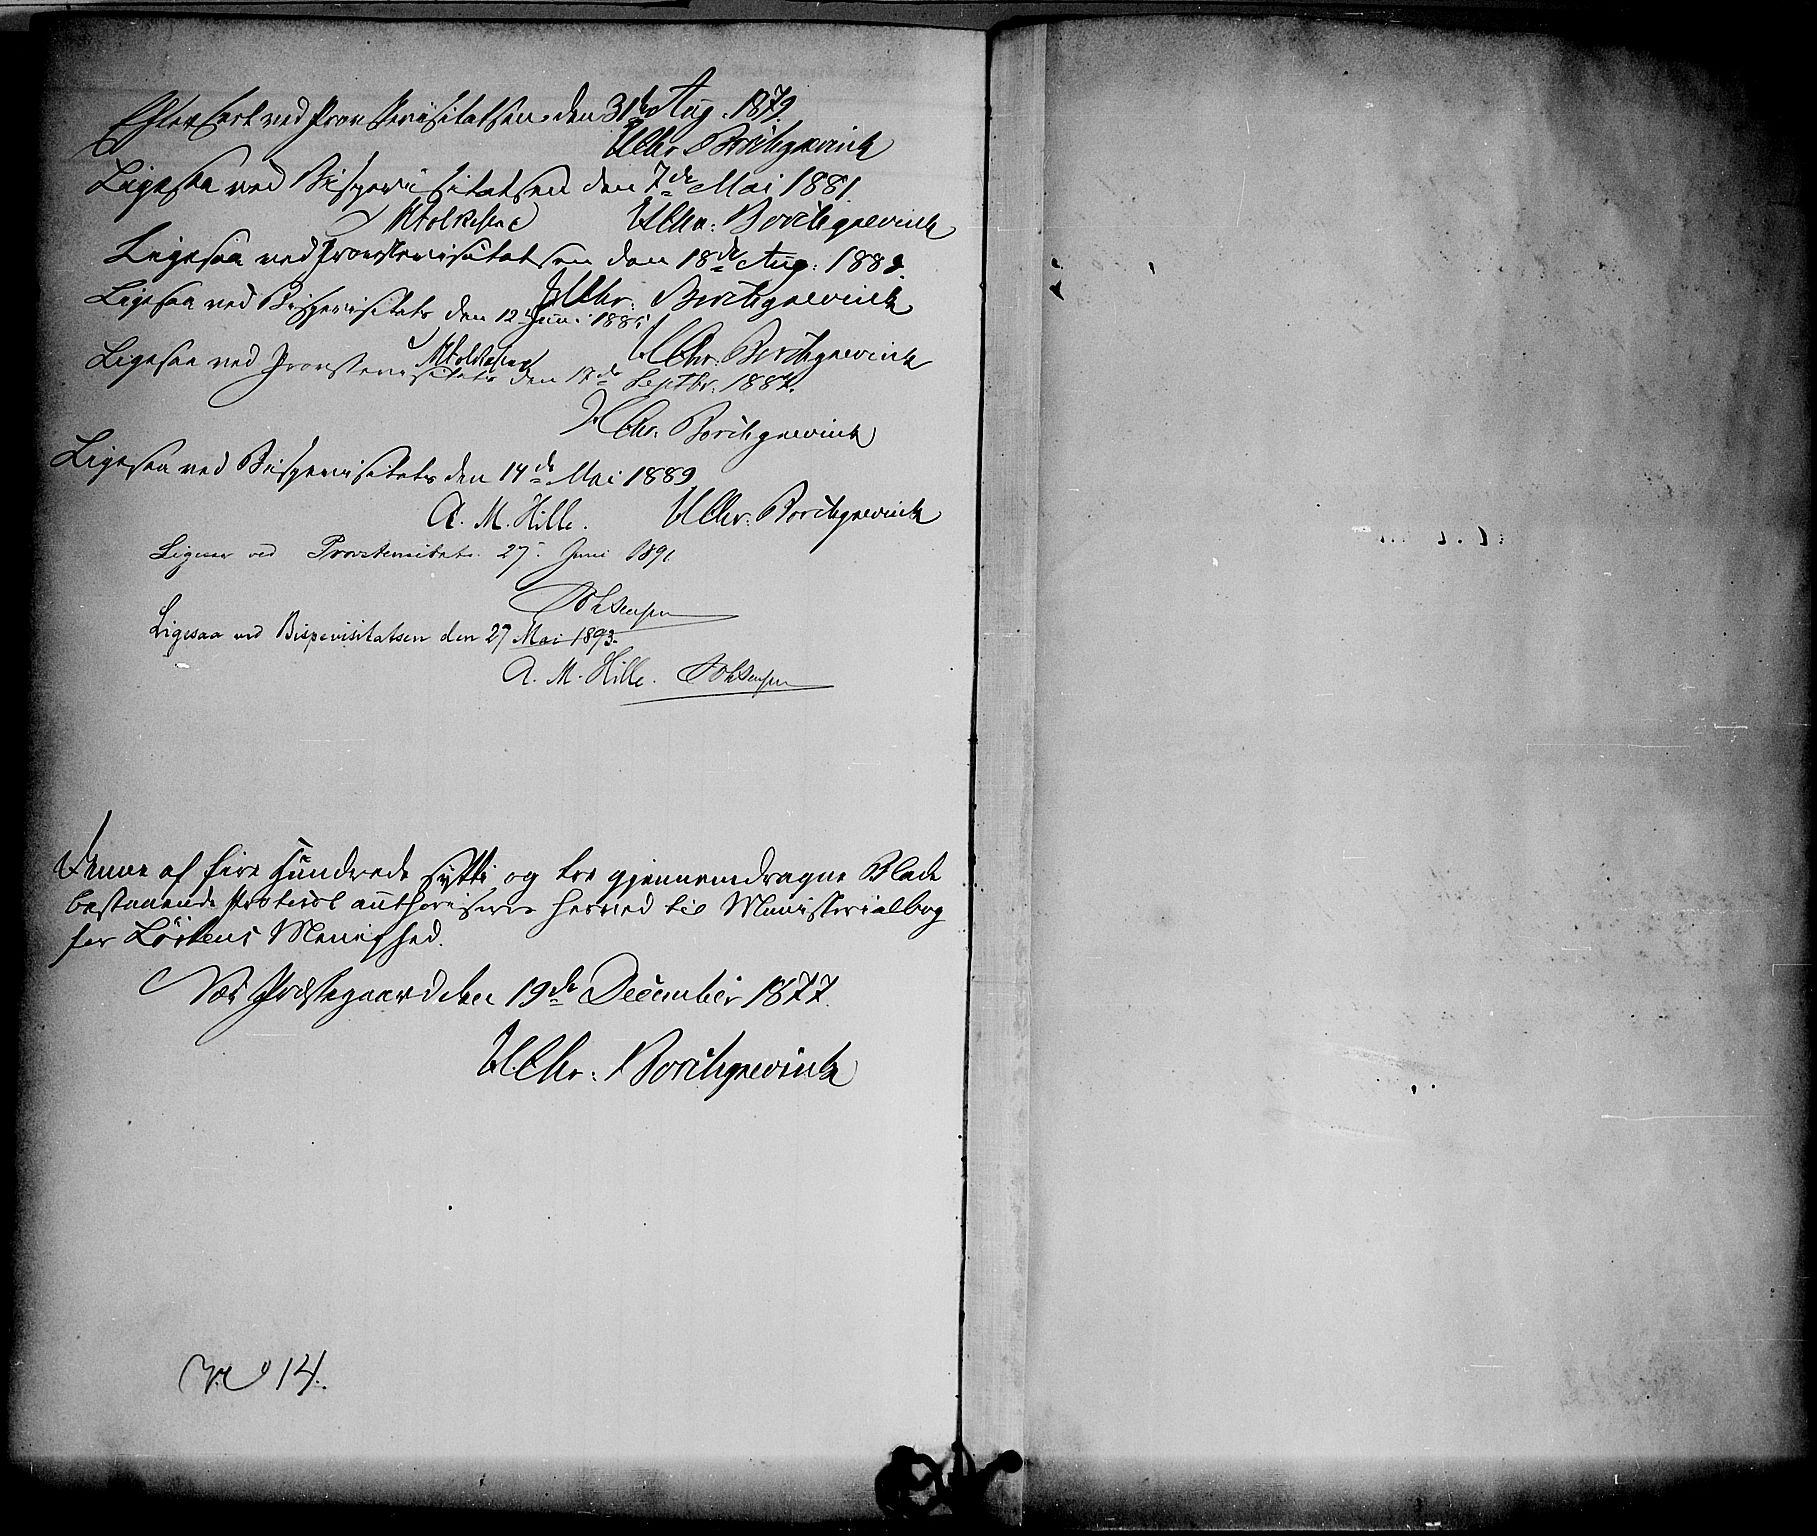 Efterseet ved Provstevisitatsen den 31te Aug. 1879.
U Chr. Borchgrevink
Ligesaa ved Bispevisitatsen den 7de Mai 1881.
H Folkestad U Chr. Borchgrevink
Ligesaa ved Provstevisitatsen den 18de Aug. 1883.
U Chr. Borchgrevink
Ligesaa ved Bispevisitats den 12 Juni 1885
H Folkestad U Chr. Borchgrevink
Ligesaa ved Provstevisitats den 17de Septbr. 1887.
U Chr. Borchgrevink
Ligesaa ved Bispevisitats den 14de Mai 1889
A. M. Hille. U Chr. Borchgrevink
Ligesaa ved Provstevisitats. 27. Juni 1891
Ligesaa ved Bispevisitatsen den 27 Mai 1893.
A. M. Hille.
Denne af fire hundrede sytti og tre gjennemdragne Blade
bestaaende Protocol authoriseres herved til Ministerialbog
for Löitens Menighed.
Præstegaard den 19de December 1877.
U Chr. Borchgrevink
No 14.